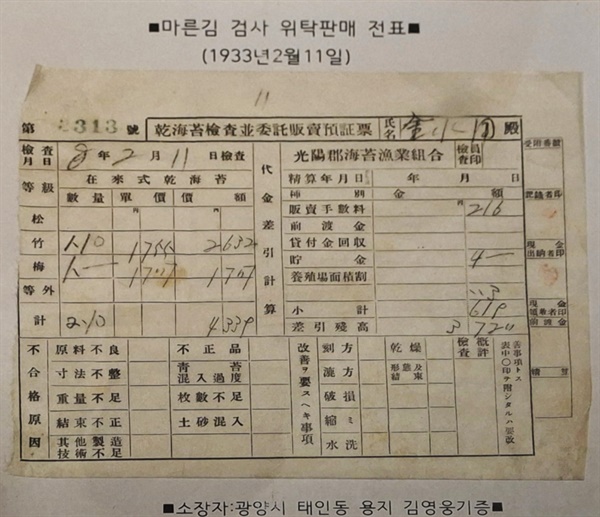 ■마른김 검사 위탁판매 전표■
(1933년2월11일)
11
第 313 號 乾海苔檢查並委託販賣預証票 氏名 殿
檢查月日 8年 2月 11日檢查
光陽郡海苔漁業組合 檢查員印
等級 在來式乾海苔
數量 單價 價額
松
竹 2632
梅
等外
計 4339
代金差引計算
精算年月日 年 月 日
種別 金額
販賣手數料 216
前渡金
貸付金回收
貯金 4-
養殖場面積割
小計 619
差引殘高 3720
不合格原因
原料不良 不正品
寸法不整 靑苔混入過度
重量不足 枚數不足
結束不正 土砂混入
其他製造技術不足
改善ヲ要スベキ事項
剝方 乾燥
漉方 形態及結束
破損
縮ミ
水洗
檢查槪評
善事項トス
表中〇印ヲ附シタルハ要改
受附番號
記錄者印
現金出納者印
現金領受者印
前渡金
精算
■소장자:광양시 태인동 용지 김영웅기증■